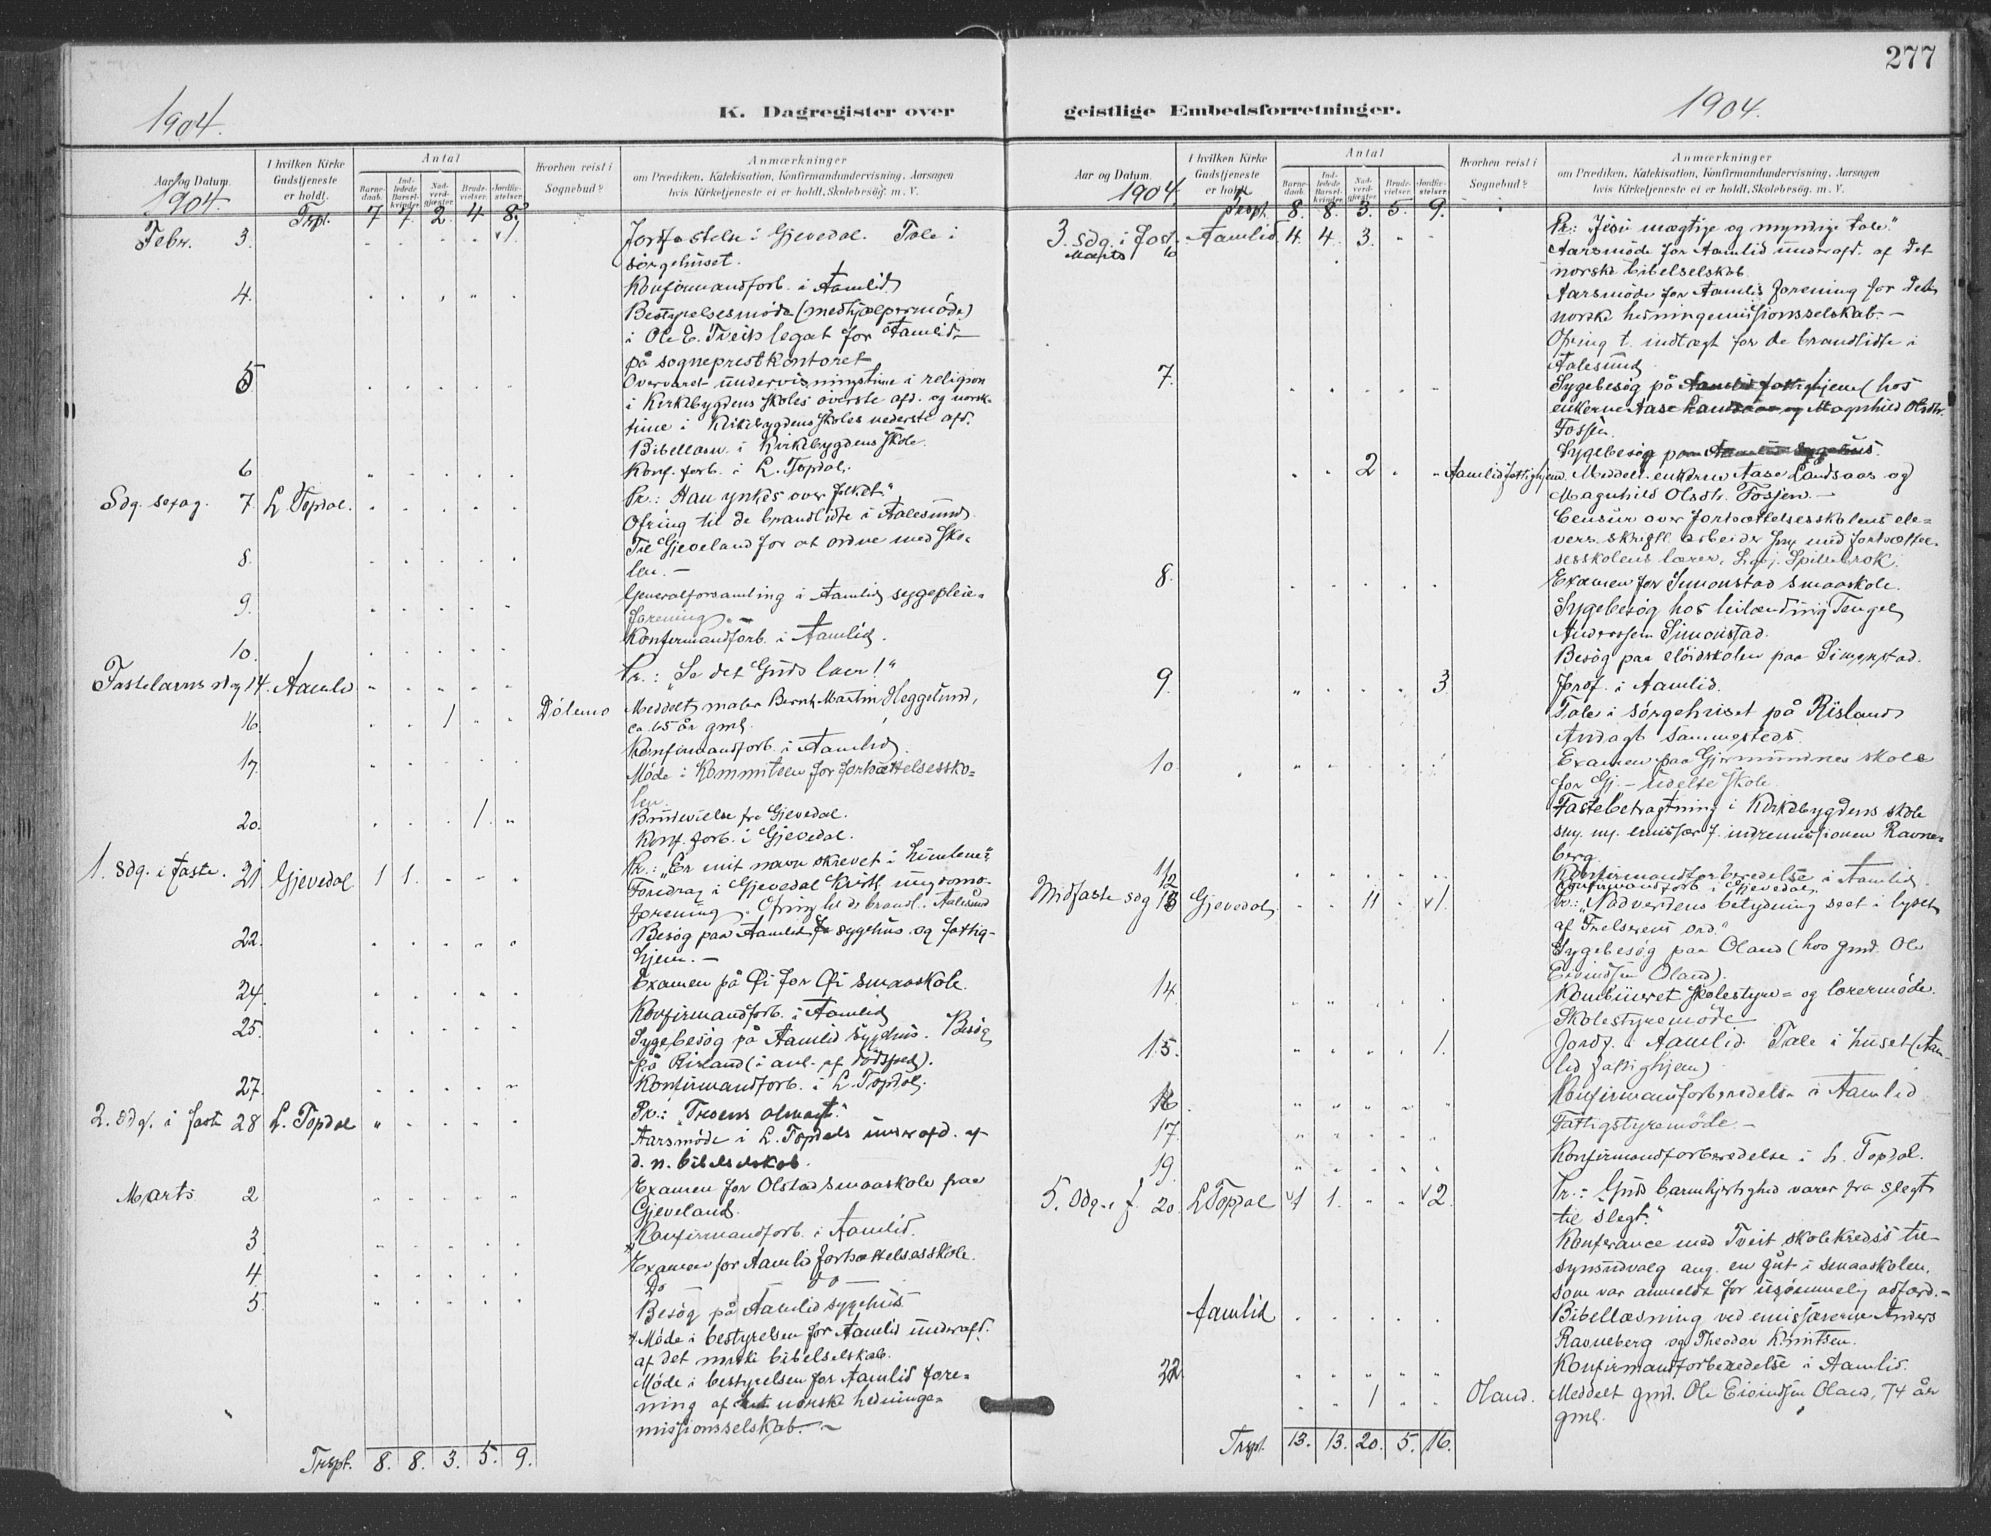 277
1904.
K. Dagregister over
Aar og Datum.
1904.
I hvilken Kirke Gudstjeneste er holdt.
Antal
Barnedaab.
Indledede Barselkvinder.
Nadverdgjæster.
Brudevielser.
Jordfæstelser.
Hvorhen reist i Sognebud?
Anmærkninger
om Prædiken, Katekisation, Konfirmandundervisning, Aarsagen
hvis Kirketjeneste ei er holdt, Skolebesøg m. V.
Trpt. 7 7 2 4 8
Febr. 3. 1 Jordfæstelse i Gjevedal. Tale i
sørgehuset.
4. Konfirmandforb. i Aamlid
Bestyrelsesmøde (medhjælpermøde)
i Ole E. Tveits legat for Aamlid
på sogneprestkontoret
5 Overværet undervisningstime i religion
i Kirkebygdens skoles øverste afd. og norsk-
time i Kirkebygdens skoles nederste afd.
Bibellæsn. i Kirkebygdens skole.
6 Konf. forb. i L. Topdal.
Sdg. sexag. 7. L. Topdal. Pr.: "Han ynkes over folket."
Ofring til de brandlidte i Aalesund.
8. Til Gjeveland for at ordne med sko-
len. -
9. Generalforsamling i Aamlid sygepleie-
forening. -
10. Konfirmandforb. i Aamlid.
Fastelavns sdag 14. Aamlid Pr.: "Se det Guds lam!"
16. 1 Dølemo Meddelt maler Bernt Martin Heggelund,
ca. 65 år gml.
Konfirmandforb. i Aamlid.
17. Møde i kommitteen for fortsættelsessko-
len.
20. 1. Brudevielse fra Gjevedal.
Konf. forb. i Gjevedal.
1. Sdg. i faste. 21 Gjevedal 1 1. Pr.: "Er mit navn skrevet i himlene?"
Foredrag i Gjevedal Kristl. ungdoms-
forening. Ofring til de brandl. i Aalesund
22. Besøg paa Aamlid sygehus og fattig-
hjem. -
24. Examen på Øi for Øi smaaskole.
25. Konfirmandforb. i Aamlid
Sygebesøg på Aamlid sygehus. Besøg
på Risland (i anl. af dødsfald).
27. Konfirmandforb. i L. Topdal.
2. Sdg. i fast 28 L. Topdal Pr.: "Troens almagt."
Aarsmøde i L. Topdals underafd. af
d. n. bibelselskab.
Marts 2 Examen for Olstad smaaskole paa
Gjeveland.
3 Konfirmandforb. i Aamlid.
Examen for Aamlid fortsættelsesskole.
4. Do — do —
5 Besøg på Aamlid sygehus
Møde i bestyrelsen for Aamlid underafd.
af det norske bibelselskab.
Møde i bestyrelsen for Aamlid fore-
ning af det norske hedninge-
missionsselskab. -
Trspt. 8. 8. 3. 5. 9.
geistlige Embedsforretninger.
1904.
Aar og Datum.
1904.
I hvilken Kirke Gudstjeneste er holdt.
Antal
Barnedaab.
Indledede Barselkvinder.
Nadverdgjæster.
Brudevielser.
Jordfæstelser.
Hvorhen reist i Sognebud?
Anmærkninger
om Prædiken, Katekisation, Konfirmandundervisning, Aarsagen
hvis Kirketjeneste ei er holdt, Skolebesøg m. V.
Trspt. 8. 8. 3. 5. 9.
3. Sdg. i fast. Marts 6 Aamlid 4. 4. 3. Pr.: "Jesu mægtige og myndige tale."
Aarsmøde for Aamlid underafd. af det
norske bibelselskab.
Aarsmøde for Aamlid forening for det
norske hedningemissionsselskab. -
Ofring t. indtægt for de brandlidte i
Aalesund
7. Sygebesøg på Aamlid fattighjem (hos
enkerne Aase Landsaas og Magnhild Olsdtr.
Fossen.
Sygebesøg paa Aamlid sygehus.
2 Aamlid fattighjem. Meddelt enkerne Aase Landsaas og
Magnhild Olsdtr. Fosjen. -
Censur over fortsættelsesskolens ele-
vers skriftl. arbeider med fortsættel-
sesskolens lærer,
8. Examen for Simonstad smaaskole.
Sygebesøg hos leilænding Tengel
Anderssen Simonstad.
Besøg paa sløidskolen paa Simonstad.
9. 3 Jordf. i Aamlid.
Tale i sørgehuset på Risland
Andagt sammesteds.
10. Examen paa Gjermundnes skole
for Gj. - Udelse skole
Fastebetragtning i Kirkebygdens skole
sm. m. emissær f. indremissionen Ravne-
berg.
12 Konfirmandforberedelse i Aamlid.
Konfirmandforb. i Gjevedal.
Midfaste sdg 13 Gjevedal 11 1. Pr.: "Nadverdens betydning seet i lyset
af Frelserens ord."
Sygebesøg paa Oland (hos gmd. Ole
Eivindsen Oland).
14. Kombineret skolestyre- og lærermøde.
Skolestyremøde
15. 1. Jordf. i Aamlid. Tale i huset (Aam-
lid fattighjem)
16 Konfirmanforberedelse i Aamlid
17. Fattigstyremøde. -
19. Konfirmandforberedelse i L. Topdal.
5. Sdg. i f. 20. L. Topdal 1 1. 2. Pr.: "Guds barmhjertighed varer fra slegt
til slegt."
Konferance med Tveit skolekreds's til-
synsudvalg ang. en gut i smaaskolen,
som var anmeldt for usømmelig adfærd. -
Aamlid Bibellæsning ved emissærerne Anders
Ravneberg og Theodor Knutsen.
22. Konfirmandforberedelse i Aamlid.
1 Oland. Meddelt gmd. Ole Eivindsen Oland, 74 år
gml.
Trspt. 13. 13. 20. 5. 16.